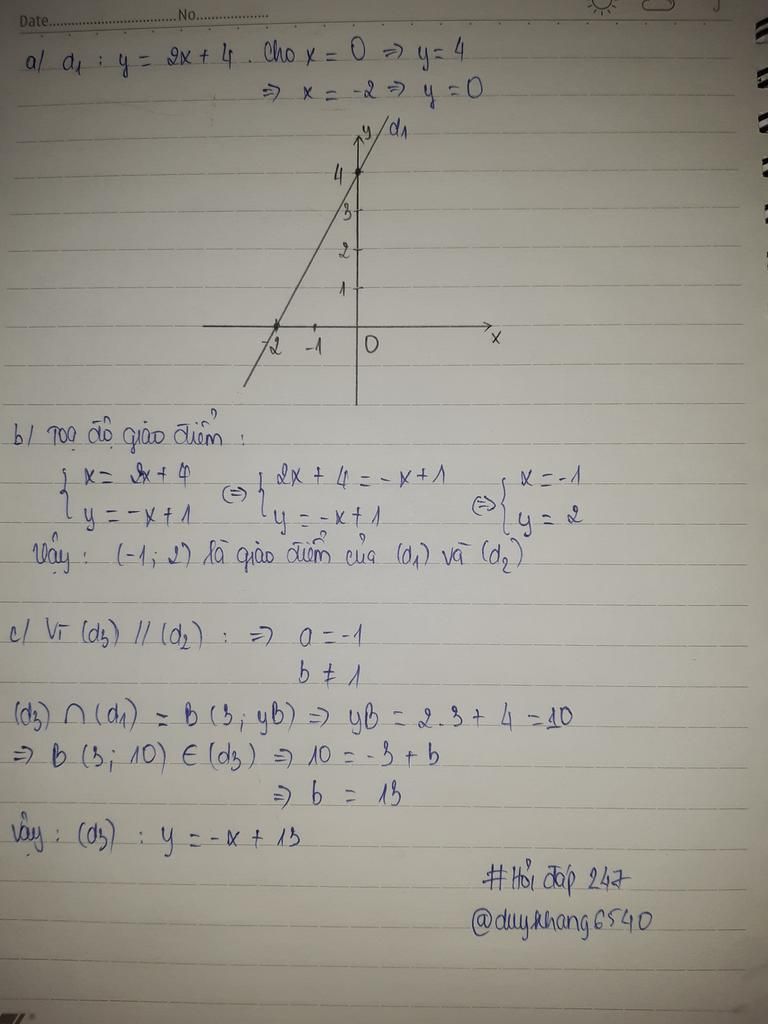 Date.................................No...................
a/ d₁ : y = 2x + 4 . Cho x = 0 => y = 4
=> x = -2 => y = 0
y d₁
4
3
2
1
-2 -1 O x
b/ Toạ độ giao điểm :
{ x = 2x + 4 <=> { 2x + 4 = -x + 1 <=> { x = -1
y = -x + 1 y = -x + 1 y = 2
Vậy : (-1 ; 2) là giao điểm của (d₁) và (d₂)
c/ Vì (d₃) // (d₂) : => a = -1
b ≠ 1
(d₃) ∩ (d₁) = B (3 ; yB) => yB = 2.3 + 4 = 10
=> B (3 ; 10) ∈ (d₃) => 10 = -3 + b
=> b = 13
Vậy : (d₃) : y = -x + 13
#Hỏi đáp 247
@duykhang6540